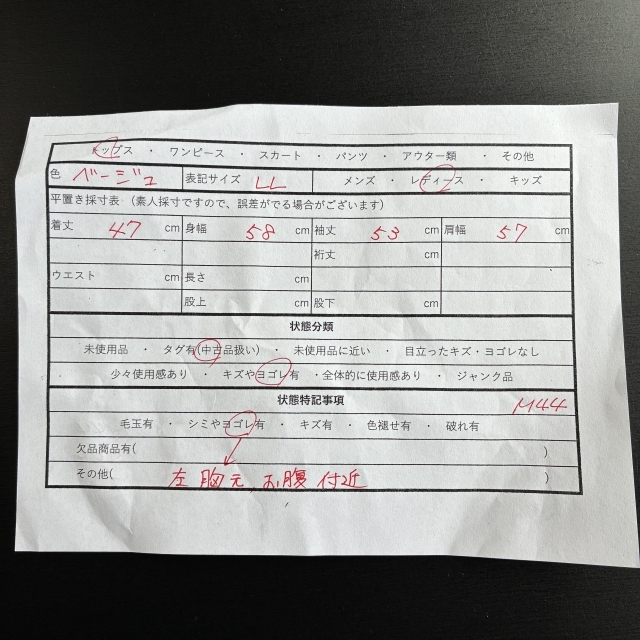 トップス ・ ワンピース ・ スカート ・ パンツ ・ アウター類 ・ その他
色 ベージュ 表記サイズ LL メンズ ・ レディース ・ キッズ
平置き採寸表 (素人採寸ですので、誤差がでる場合がございます)
着丈 47 cm 身幅 58 cm 袖丈 53 cm 肩幅 57 cm
裄丈 cm
ウエスト cm 長さ cm
股上 cm 股下 cm
状態分類
未使用品 ・ タグ有(中古品扱い) ・ 未使用品に近い ・ 目立ったキズ・ヨゴレなし
少々使用感あり ・ キズやヨゴレ有 ・全体的に使用感あり ・ ジャンク品
状態特記事項
M44
毛玉有 ・ シミやヨゴレ有 ・ キズ有 ・ 色褪せ有 ・ 破れ有
欠品商品有( )
その他( 左胸元 お腹付近 )